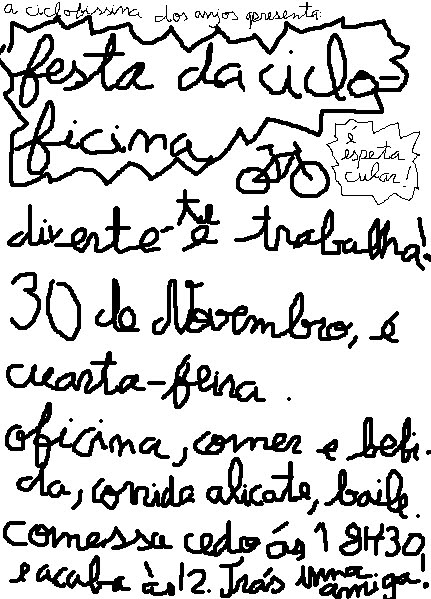 a ciclobissina dos anjos apresenta:
festa da ciclo-
ficina
é
espeta
cular!
diverte-te é trabalha!
30 de Novembro, é
cuarta-feira.
oficina, comer e bebi-
da, comida alicate, baile.
comessa cedo ás 18H30
e acaba ás 12. Trás uma amiga!